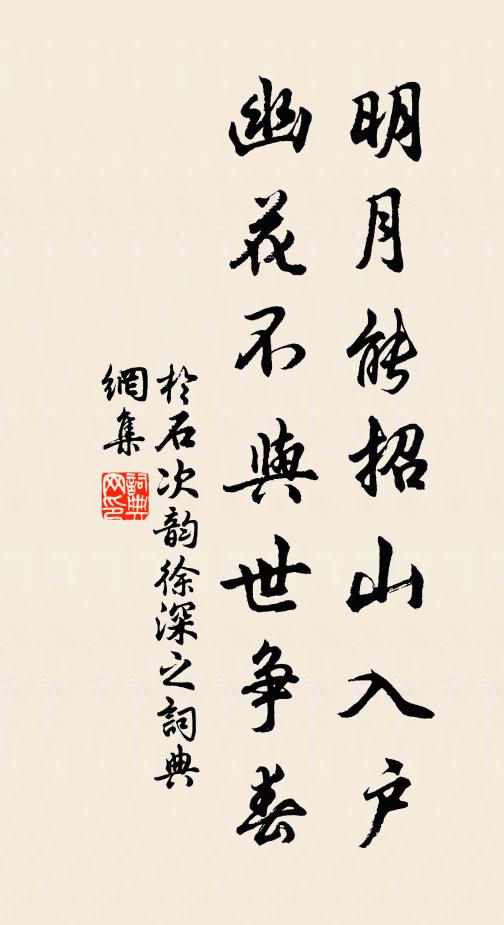 明月能招山入户
幽花不與世争春
於石次韵徐深之詞典
網集
詞典
网印